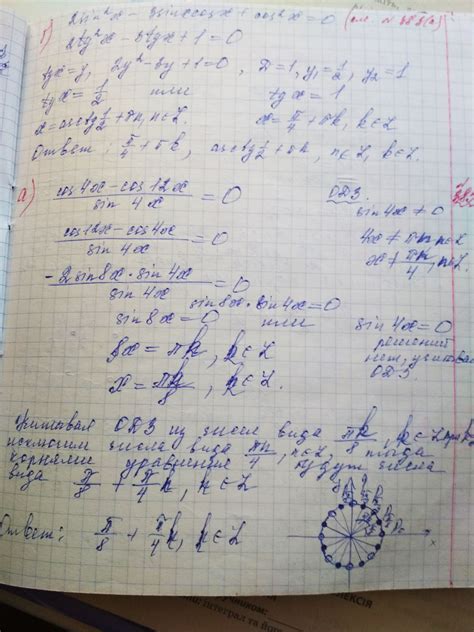 г) 2sin²x − 3sinxcosx + cos²x = 0
2tg²x − 3tgx + 1 = 0
tgx = y, 2y² − 3y + 1 = 0, D = 1, y₁ = 1/2, y₂ = 1
tgx = 1/2 или tgx = 1
x = arctg 1/2 + πn, n ∈ Z. x = π/4 + πk, k ∈ Z
Ответ: π/4 + πk, arctg 1/2 + πn, n ∈ Z, k ∈ Z.
а) (cos4x − cos12x)/sin4x = 0 ОДЗ:
sin4x ≠ 0
(cos12x − cos4x)/sin4x = 0 4x ≠ πn, n ∈ Z
x ≠ πn/4, n ∈ Z
(−2sin8x · sin4x)/sin4x = 0
sin8x · sin4x = 0
sin8x = 0 или sin4x = 0
8x = πk, k ∈ Z решений нет, учитывая
x = πk/8, k ∈ Z. ОДЗ.
Учитывая ОДЗ из чисел вида πk/8, k ∈ Z
исключим числа вида πn/4, n ∈ Z, тогда
корнями уравнения будут числа
вида π/8 + π/4 k, k ∈ Z
Ответ: π/8 + π/4 k, k ∈ Z
x